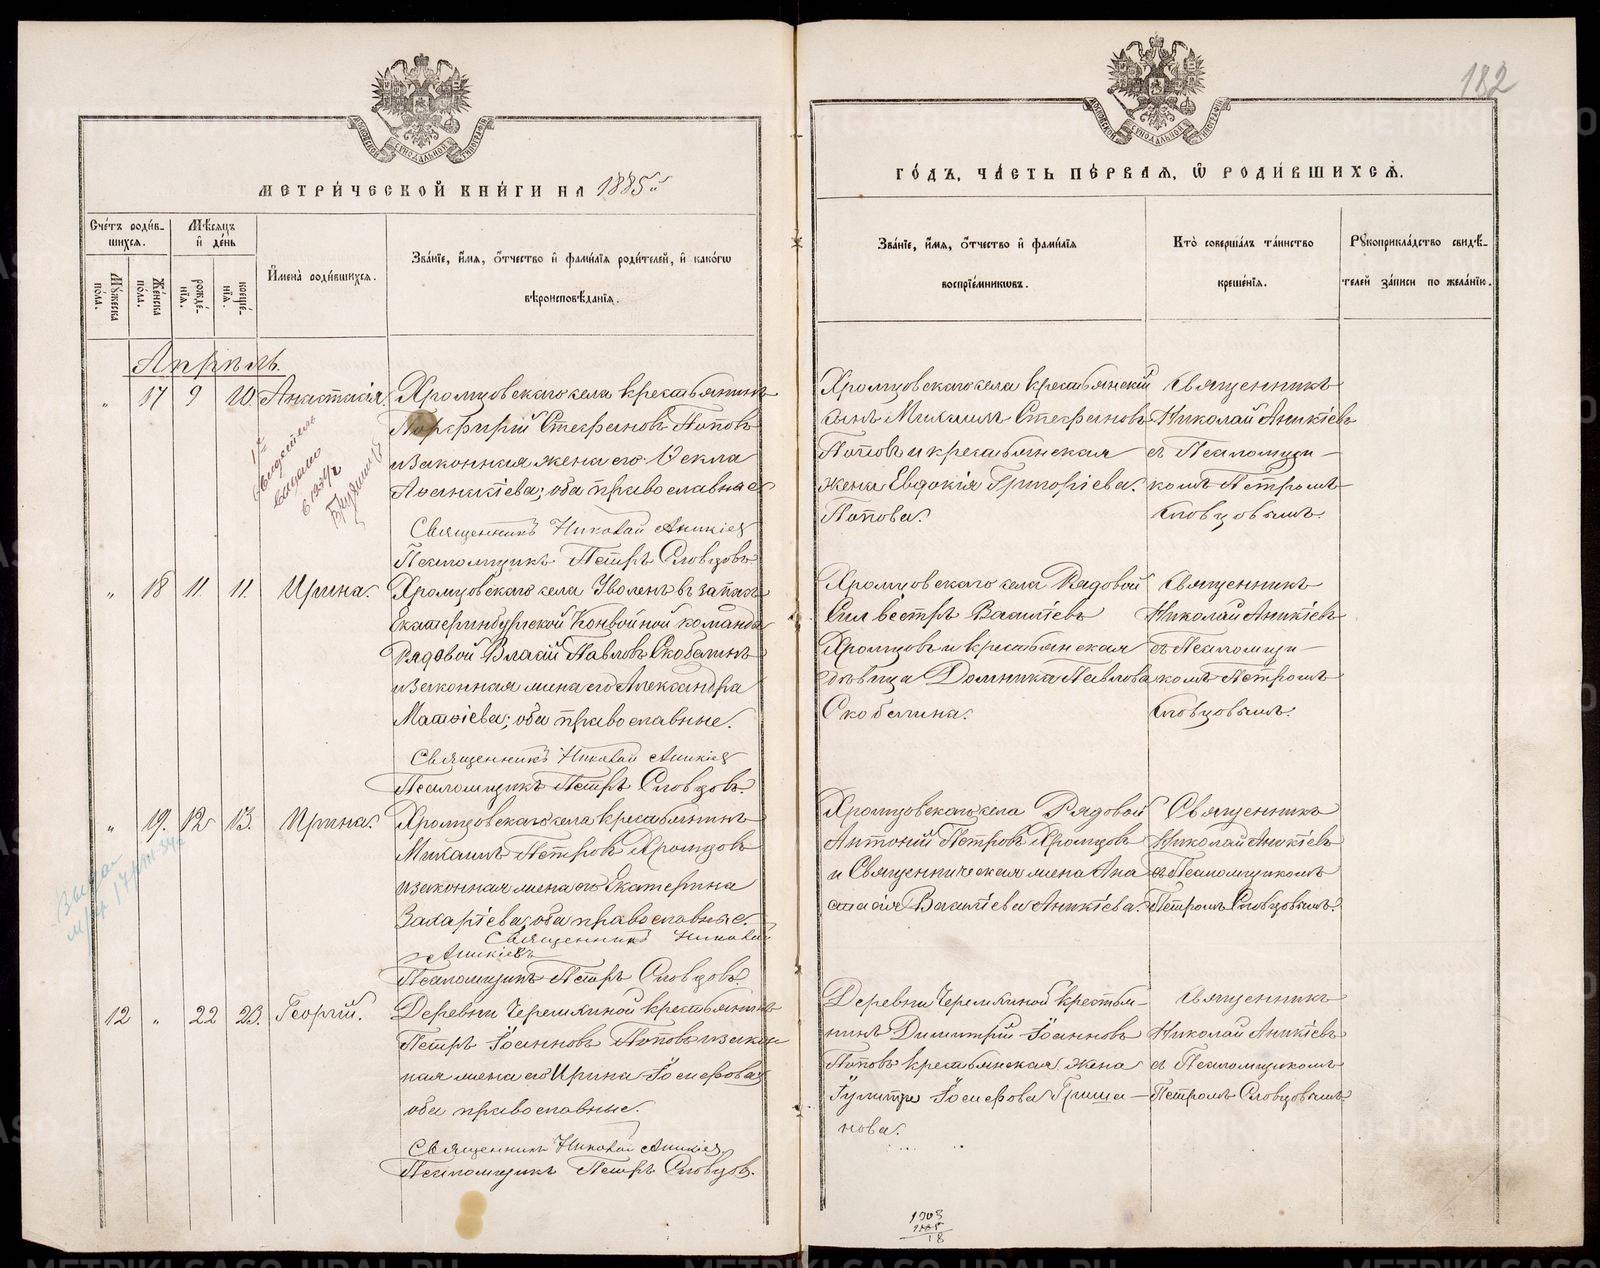 182
МЕТРИ́ЧЕСКОЙ КНИ́ГИ НА 1885й
ГО́ДЪ, ЧА́СТЬ ПЕ́РВАЯ, Ѡ РОДИ́ВШИХСѦ.
Сче́тъ роди́в-
шихся.
Мѣ́сяцъ
и҆ де́нь
Му́жеска
по́ла.
Же́нска
по́ла.
рожде́-
нїя.
креще́-
нїя.
И҆мена̀ роди́вшихся.
Зва́нїе, и҆́мя, ѻ҆́тчество и҆ фами́лїя роди́телей, и҆ како́гѡ
вѣроисповѣ́данїя.
Зва́нїе, и҆́мя, ѻ҆́тчество и҆ фами́лїя
воспрїе́мникѡвъ.
Кто̀ соверша́лъ та́инство
креще́нїя.
Рꙋкоприкла́дство свидѣ́-
телей за́писи по жела́нїю.
Апрѣль.
„ 17 9 10. Анастасія.
Хромцовскаго села крестьянинъ
Порфирій Стефановъ Поповъ
и законная жена его Ѳекла
Аѳанасіева; оба православные
Священникъ Николай Аникіевъ
Псаломщикъ Петръ Словцовъ
Хромцовскаго села крестьянскій
сынъ Михаилъ Стефановъ
Поповъ и крестьянская
жена Евдокія Григоріева
Попова.
Священникъ
Николай Аникіевъ
съ Псаломщи-
комъ Петромъ
Словцовымъ.
„ 18 11 11. Ирина.
Хромцовскаго села Уволен. въ запасъ
Екатеринбургской Конвойной команды
Рядовой Власій Павловъ Скобелинъ
и законная жена его Александра
Матѳіева; оба православные.
Священникъ Николай Аникіевъ
Псаломщикъ Петръ Словцовъ.
Хромцовскаго села Рядовой
Сильвестръ Василіевъ
Хромцовъ и крестьянская
дѣвица Домника Павлова
Скобелина.
Священникъ
Николай Аникіевъ
съ Псаломщи-
комъ Петромъ
Словцовымъ.
„ 19. 12 13. Ирина.
Хромцовскаго села крестьянинъ
Михаилъ Петровъ Хромцовъ
и законная жена его Екатерина
Захаріева; оба православные.
Священникъ Николай
Аникіевъ
Псаломщикъ Петръ Словцовъ.
Хромцовскаго села Рядовой
Антоній Петровъ Хромцовъ
и Священническая жена Ана
стасія Василіева Аникіева.
Священникъ
Николай Аникіевъ
съ Псаломщикомъ
Петромъ Словцовымъ.
12 „ 22 23. Георгій.
Деревни Черемхиной крестьянинъ
Петръ Іоанновъ Поповъ и закон
ная жена его Ирина Іосифова;
оба православные.
Священникъ Николай Аникіевъ
Псаломщикъ Петръ Словцовъ.
Деревни Черемхиной крестья-
нинъ Димитрій Іоанновъ
Поповъ крестьянская жена
Іосифова Гриша-
нова.
Священникъ
Николай Аникіевъ
съ Псаломщикомъ
Петромъ Словцовымъ
1903
1885
18